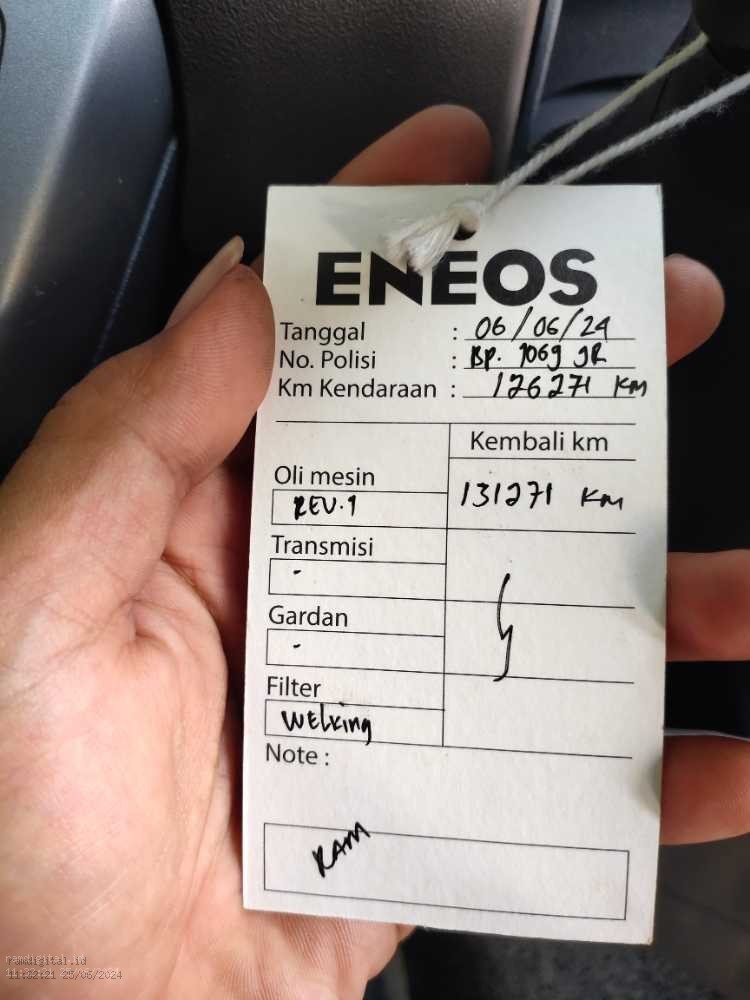 ENEOS
Tanggal : 06/06/24
No. Polisi : BP. 1069 JR
Km Kendaraan : 126271 KM
Kembali km
Oli mesin
REV.1 131271 KM
Transmisi
-
Gardan
-
Filter
Welking
Note :
RAM
ramdigital.id
11:32:21 25/06/2024